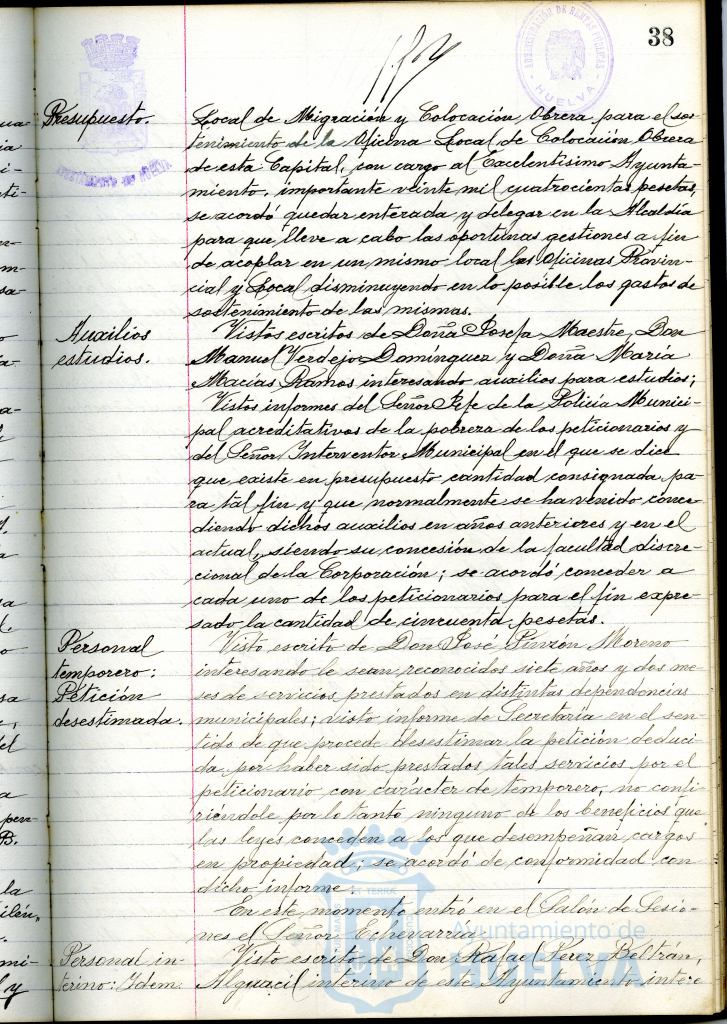 38
ADMINISTRACIÓN DE RENTAS PÚBLICAS
HUELVA
AYUNTAMIENTO DE HUELVA
Presupuesto.
Local de Migración y Colocación Obrera para el sos-
tenimiento de la Oficina Local de Colocación Obrera
de esta Capital, con cargo al Excelentísimo Ayunta-
miento, importante veinte mil cuatrocientas pesetas,
se acordó quedar enterada y delegar en la Alcaldía
para que lleve a cabo las oportunas gestiones a fin
de acoplar en un mismo local las Oficinas Provin-
cial y Local disminuyendo en lo posible los gastos de
sostenimiento de las mismas.
Auxilios
estudios.
Vistos escritos de Doña Josefa Maestre, Don
Manuel Verdejo Dominguez y Doña María
Macías Ramos interesando auxilios para estudios;
Vistos informes del Señor Jefe de la Policía Munici-
pal acreditativos de la pobreza de los peticionarios y
del Señor Interventor Municipal en el que se dice
que existe en presupuesto cantidad consignada pa-
ra tal fin y que normalmente se ha venido conce-
diendo dichos auxilios en años anteriores y en el
actual, siendo su concesión de la facultad discre-
cional de la Corporación; se acordó conceder a
cada uno de los peticionarios para el fin expre-
sado la cantidad de cincuenta pesetas.
Personal
temporero:
Petición
desestimada.
Visto escrito de Don José Pinzón Moreno
interesando le sean reconocidos siete años y dos me-
ses de servicios prestados en distintas dependencias
municipales; visto informe de Secretaría en el sen-
tido de que procede desestimar la petición deduci-
da por haber sido prestados tales servicios por el
peticionario con carácter de temporero, no confi-
riéndole por lo tanto ninguno de los beneficios que
las leyes conceden a los que desempeñan cargos
en propiedad; se acordó de conformidad con
dicho informe.
En este momento entró en el Salón de Sesio-
nes el Señor Echevarría.
Personal in-
terino: Idem.
Visto escrito de Don Rafael Pérez Beltrán,
Alguacil interino de este Ayuntamiento intere
Ayuntamiento de
HUELVA